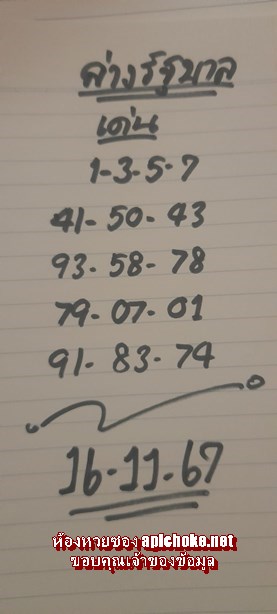 ล่างรัฐบาล
เด่น
1-3-5-7
41-50-43
93-58-78
79-07-01
91-83-74
16-11.67
ห้องหวยซอง apichoke.net
ขอบคุณเจ้าของข้อมูล